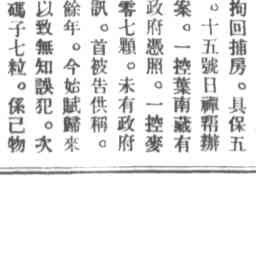 拘回捕房。具保五
。十五號日禪鞫辦
案。一控葉南藏有
政府憑照。一控麥
零七顆。未有政府
訊。首被告供稱。
餘年。今始賦歸來
以致無知誤犯。次
碼子七粒。係己物